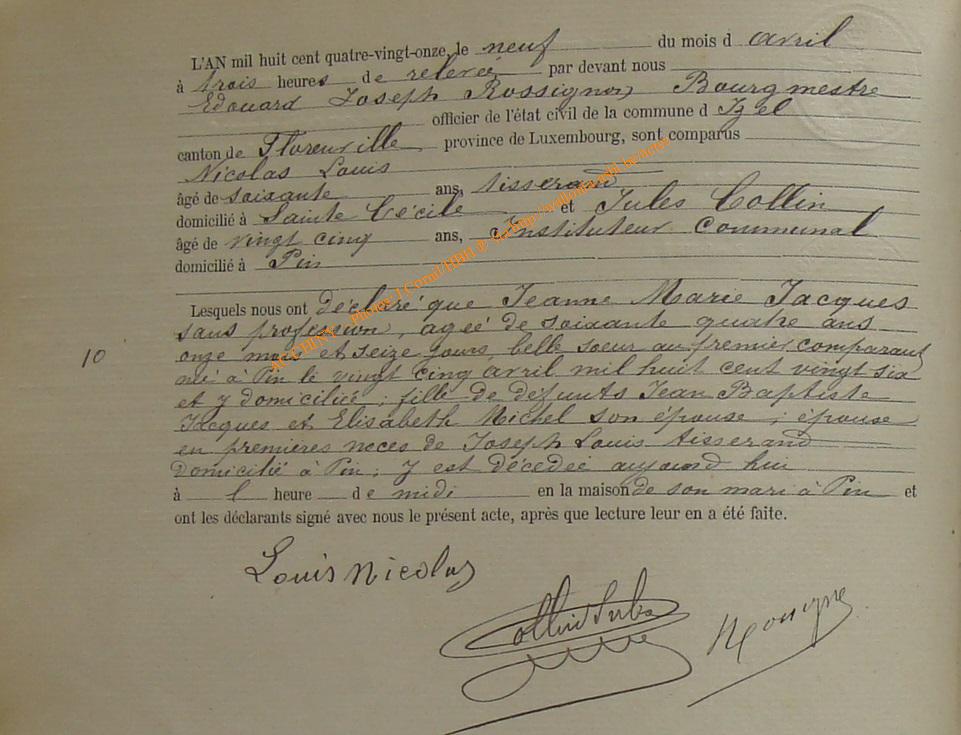 L'AN mil huit cent quatre-vingt-onze, le neuf du mois d avril
à trois heures de relevée par devant nous
Edouard Joseph Rossignon, Bourgmestre
officier de l'état civil de la commune d Izel
canton de Florenville province de Luxembourg, sont comparus
Nicolas Louis
âgé de soixante ans, tisserand
domicilié à Sainte Cécile et Jules Collin
âgé de vingt cinq ans, Instituteur Communal
domicilié à Pin
Lesquels nous ont déclaré que Jeanne Marie Jacques
sans profession, agée de soixante quatre ans
10 onze mois et seize jours, belle soeur au premier comparant
née à Pin le vingt cinq avril mil huit cent vingt six
et y domiciliée ; fille de défunts Jean Baptiste
Jacques et Elisabeth Michel son épouse ; épouse
en premières noces de Joseph Louis tisserand
domicilié à Pin ; y est décédée aujourd hui
à l heure de midi en la maison de son mari à Pin et
ont les déclarants signé avec nous le présent acte, après que lecture leur en a été faite.
Louis Nicolas
Collin Jules